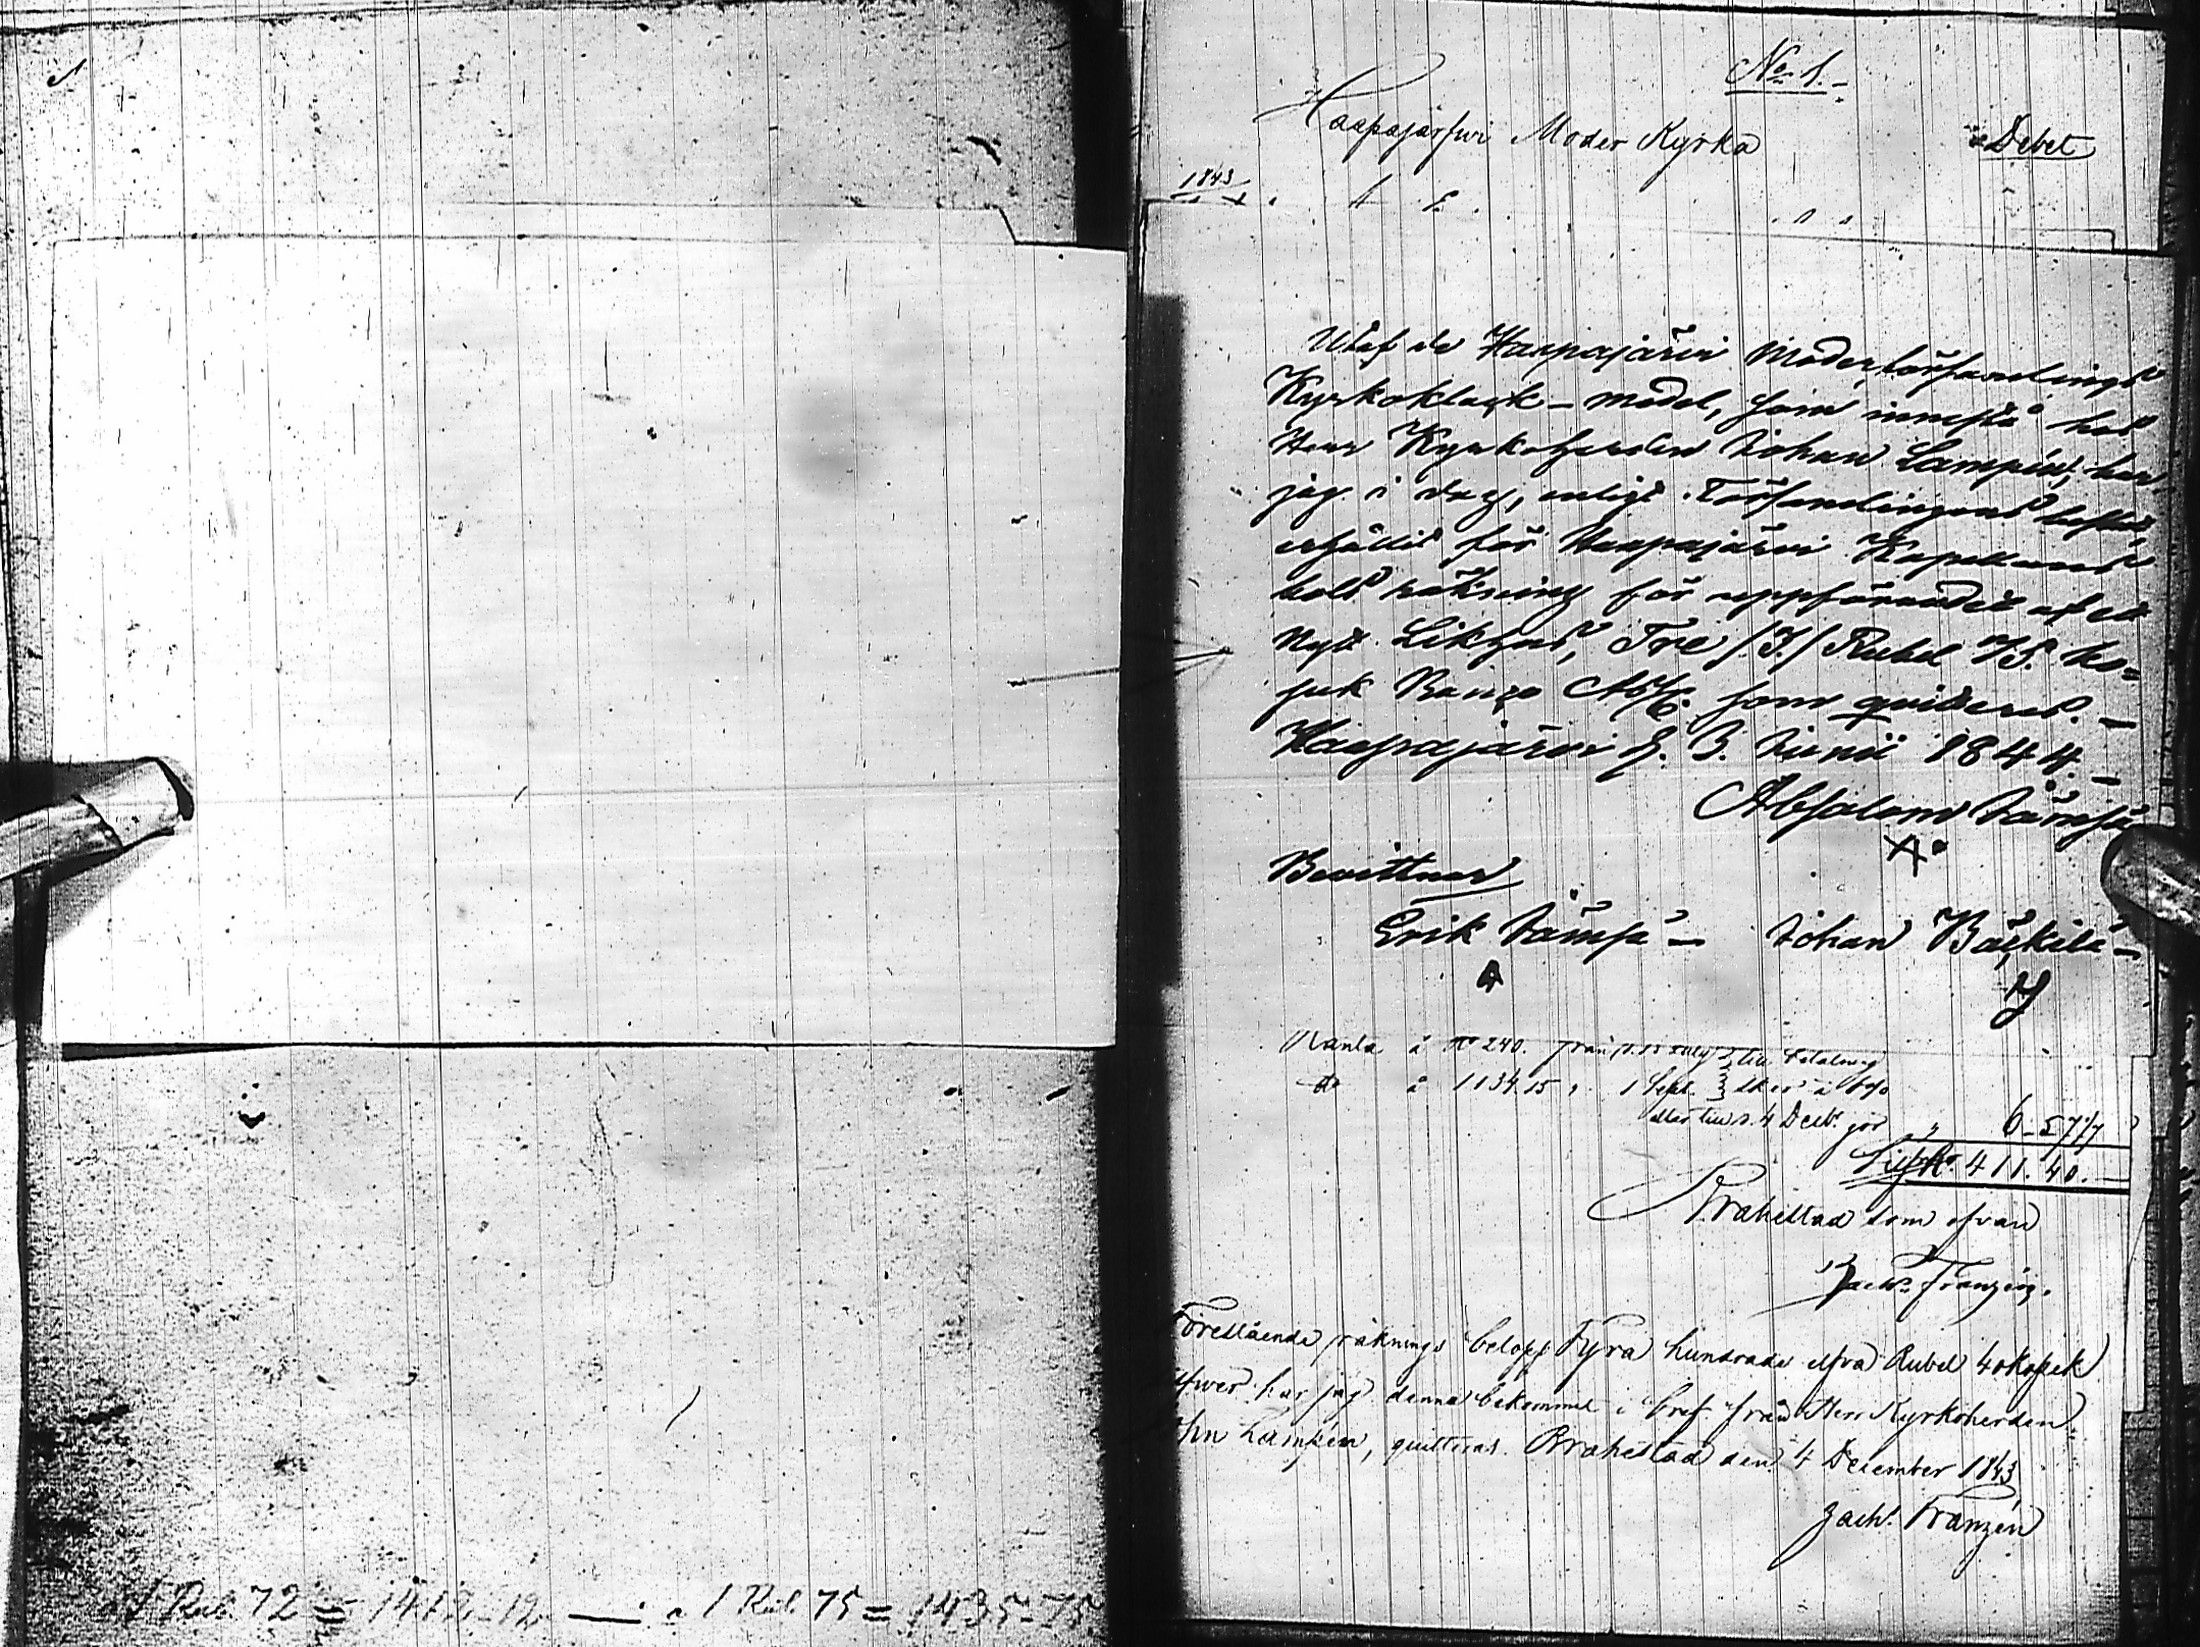 No 1.
Haapajärfwi Moder Kyrka Debet
1843
Utaf de Haapajärvi Moderförsamlings
Kyrkoklock-medel, som innestå hos
Herr Kyrkoherden Johan Lampén, har
jag i dag, enligt Församlingens beslut,
erhållit för Haapajärvi Kapellans
bols räkning för uppförandet af et
Nytt Likhus, Tre /3./ Rubel 75. ko=
pek Banco Ass, som quitteras. —
Haapajärvi d. 3. Junii 1844. —
Absalom Jämsä
A.
Bevittnar
Erik Jämsä — Johan Bäckilä —
Ränta å Ro 240. från till betalning
do å 1134.15 " 1 Sept. sker à 6 %
eller till d. 4 Decbr gör " 6-57 1/7
411.40.—
Brahestad som ofvan
Zachs Franzén.
Förestående räknings belopp Fyra hundrade elfva Rubel 40 kopek
Silfver har jag denna dag bekommit i bref från Herr Kyrkoherden
Lampén, quitteras. Brahestad den 4 December 1843
Zachs Franzén
à 1 Rub. 72 = 1412-12 — à 1 Rub. 75 = 1435-75